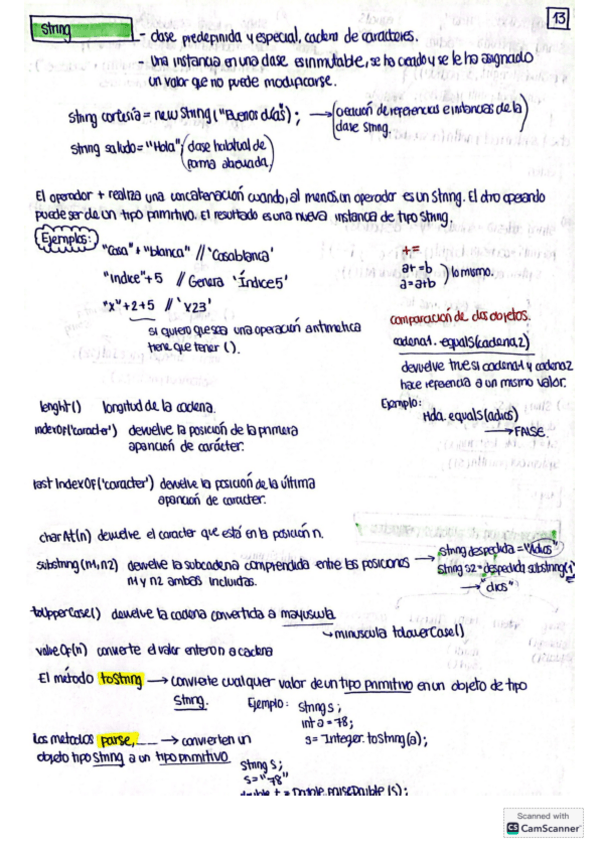 String
- clase predefinida y especial, cadena de caracteres.
13
Una instancia en una clase es inmutable, se ha creado y se le ha asignado
un valor que no puede modificarse.
String cortesía = new String("Buenos días"); → (creación de referencias e instancias de la
clase String.)
String saludo = "Hola" (clase habitual de
forma abreviada)
El operador + realiza una concatenación cuando, al menos, un operador es un String. El otro operando
puede ser de un tipo primitivo. El resultado es una nueva instancia de tipo String.
Ejemplos:
"Casa" + "blanca" // 'Casablanca'
"índice" + 5 // Genera 'Índice5'
"X" + 2 + 5 // 'X23'
si quiero que sea una operación aritmetica
tiene que tener ().
+=
a+=b
a=a+b
) lo mismo.
comparación de dos objetos.
cadena1.equals(cadena2)
devuelve true si cadena1 y cadena2
hace referencia a un mismo valor.
Ejemplo:
Hola.equals(adios)
→ FALSE.
lenght() longitud de la cadena.
indexOf('caracter') devuelve la posición de la primera
aparición de carácter.
last IndexOf('caracter') devuelve la posición de la última
aparición de caracter.
char At(n) devuelve el caracter que está en la posición n.
substring(n1,n2) devuelve la subcadena comprendida entre las posiciones →
n1 y n2 ambas incluidas.
String despedida = "Adios"
String s2 = despedida substring(1
→ "dios")
toUpperCase() devuelve la cadena convertida a mayuscula
↳ minuscula toLowerCase()
valueOf(n) convierte el valor entero n a cadena
El método toString → convierte cualquier valor de un tipo primitivo en un objeto de tipo
String.
Ejemplo: String s;
int a = 78;
s = Integer.toString(a);
Los metodos parse,___ → convierten un
objeto tipo String a un tipo primitivo
String s;
s="78"
double t = Double.parseDouble(s);
Scanned with
CS CamScanner